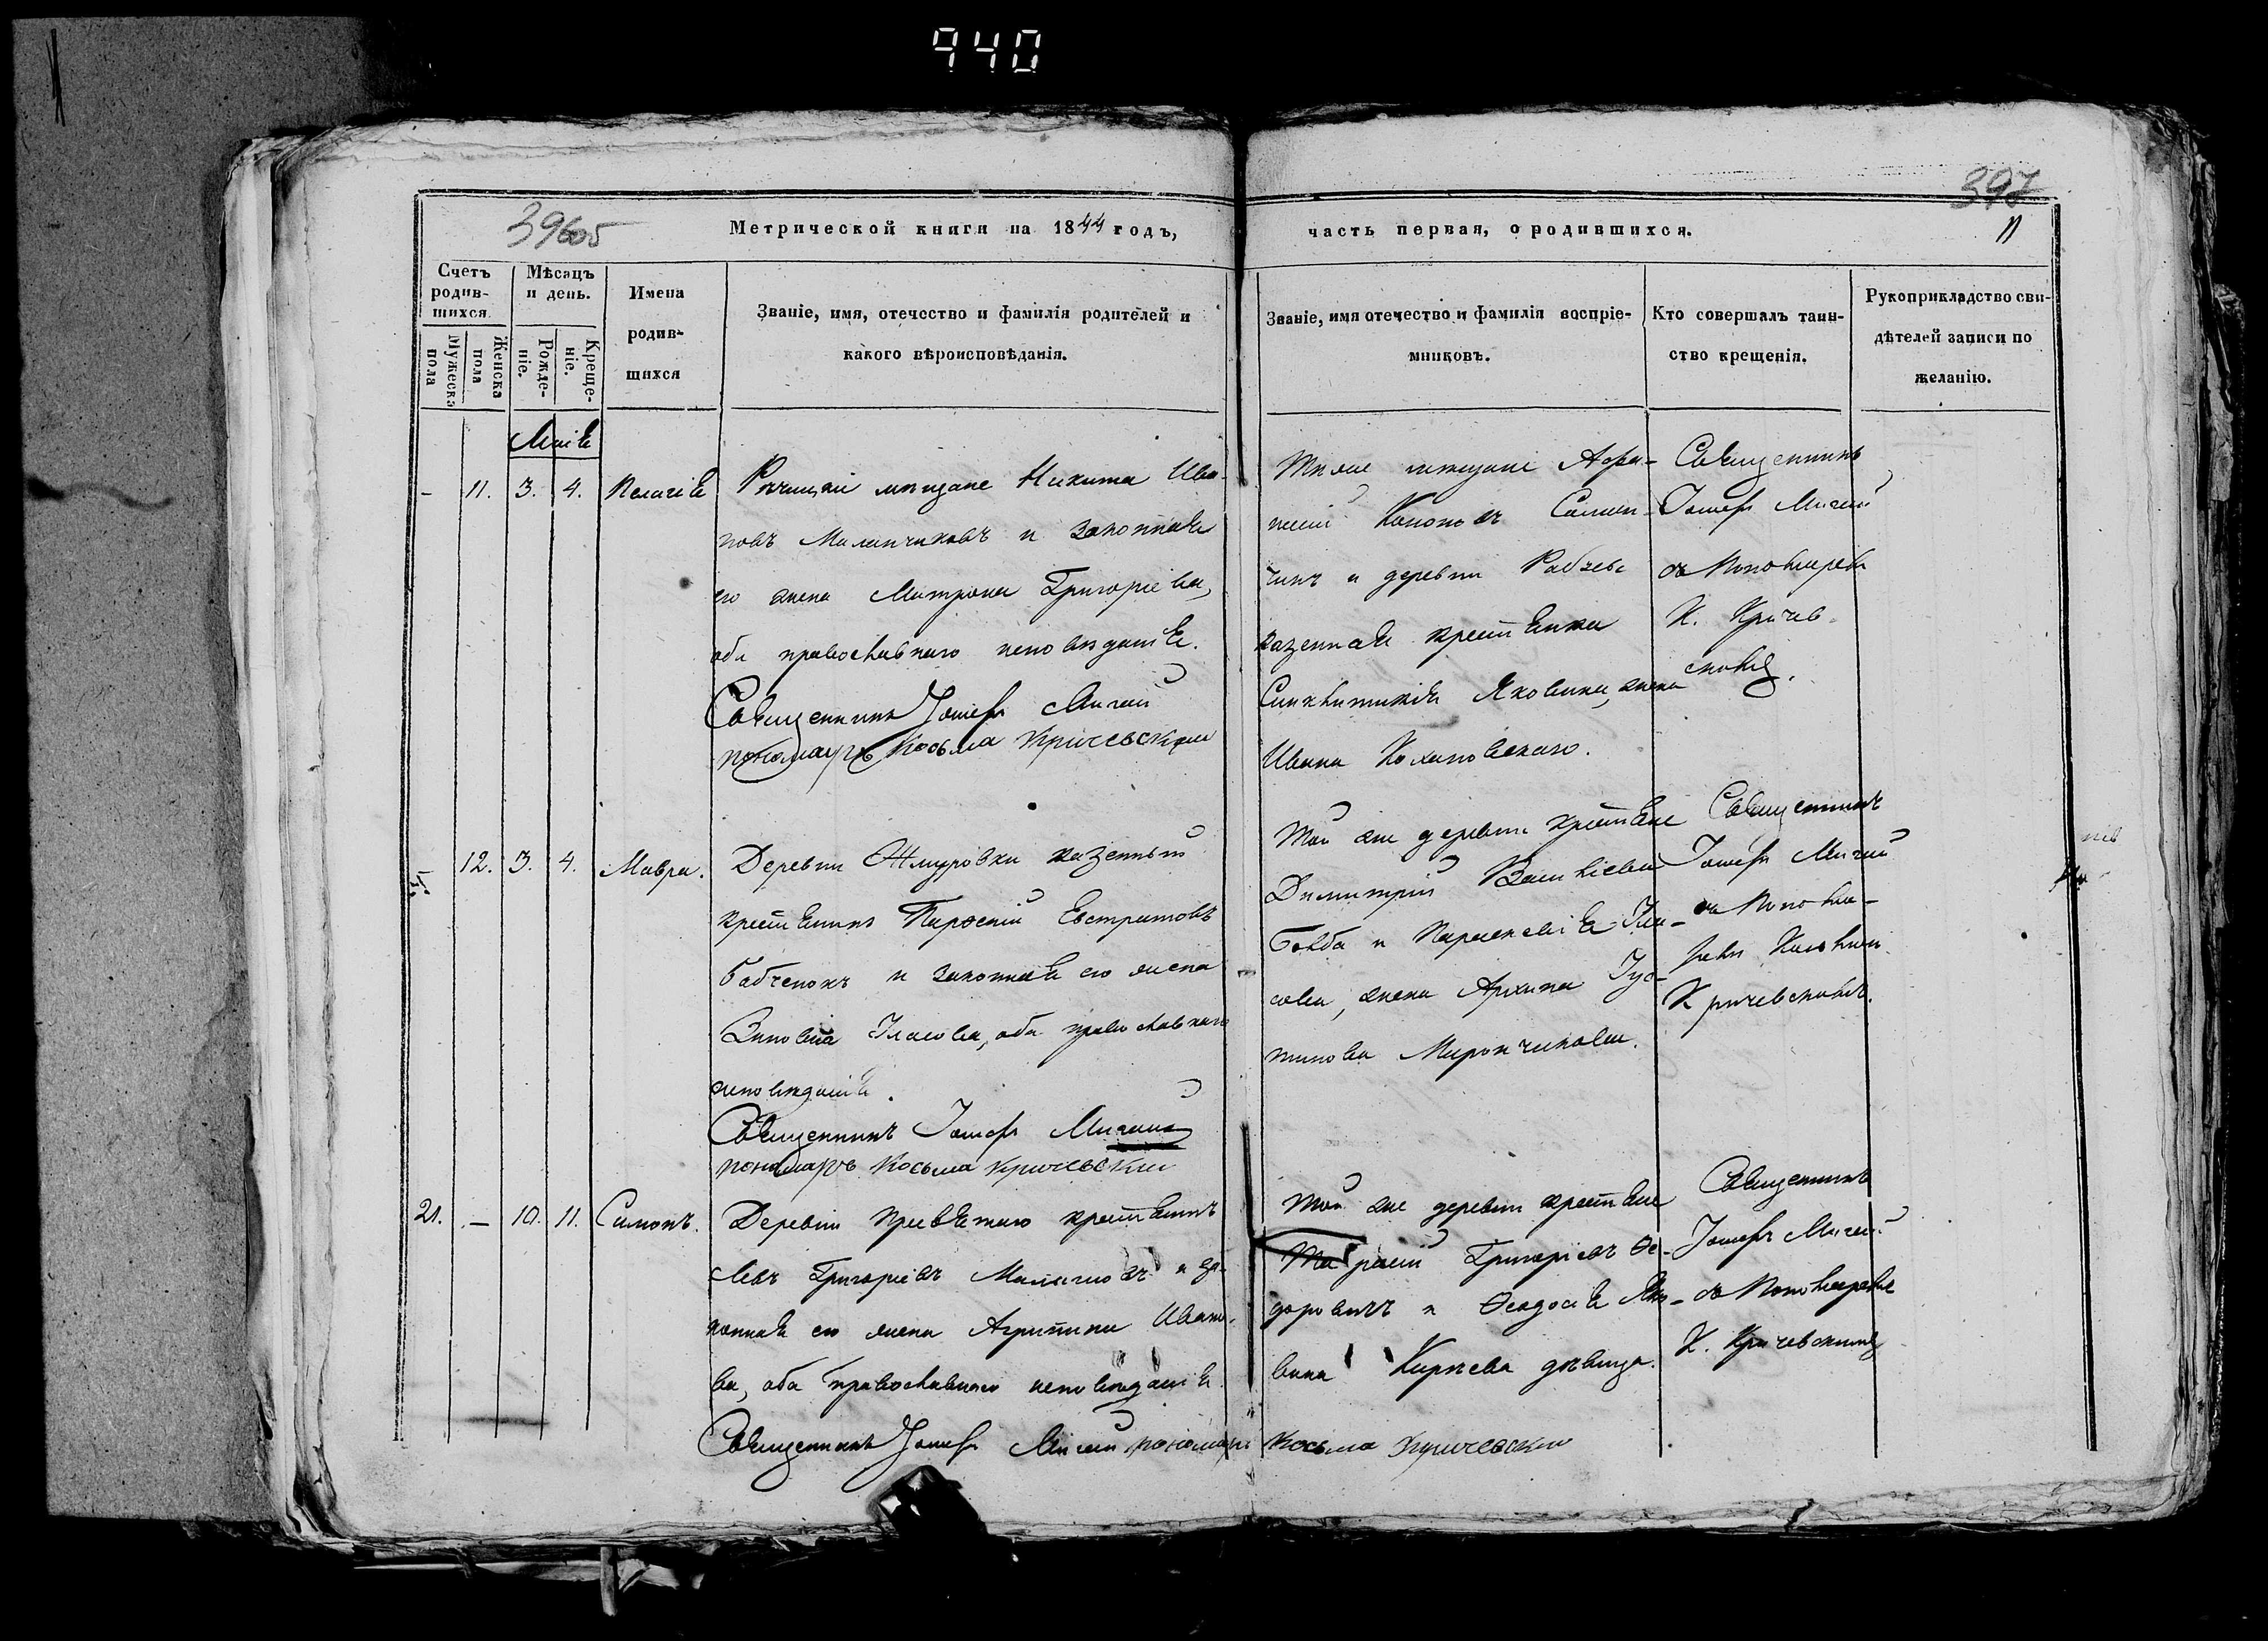 940
397
396об
Метрической книги на 1844 годъ,
часть первая, о родившихся.
11
Счетъ родив-шихся.
Мужеска пола
Женска пола
Мѣсяцъ и день.
Рожде-ніе.
Креще-ніе.
Имена родив-шихся
Званіе, имя, отечество и фамилія родителей и
какого вѣроисповѣданія.
Званіе, имя отечество и фамилія воспріе-
мниковъ.
Кто совершалъ таин-
ство крещенія.
Рукоприкладство сви-
дѣтелей записи по
желанію.
Маія
- 11. 3. 4. Пелагія
Рѣчицкій мѣщане Никита Ива-
новъ Маланчиковъ и законная
его жена Матрона Григоріева,
оба православнаго исповѣданія.
Священникъ Іосифъ
пономарь Косьма Кричевскій
Тіи же мѣщане Афа-
насій Кононовъ
и деревни
казенная крестьянка
Синклитикія Яковина, жена
Ивана Кохановскаго.
Священникъ
Іосифъ
съ Пономаремъ
К. Кричев-
скимъ.
12. 3. 4. Мавра.
Деревни Жмуровки казенный
крестьянинъ Евстратовъ
Бабченокъ и законная его жена
Зиновія Власова, оба православнаго
исповѣданія.
Священникъ Іосифъ
пономарь Косьма Кричевскій
Той же деревни крестьяне
Димитрій
и Параскевія
жена Архипа
Мирончикова.
Священникъ
Іосифъ
съ Понома-
ремъ
Кричевскимъ.
21. - 10. 11. Симонъ.
Деревни крестьянинъ
Левъ Григоріевъ и за-
конная его жена Агрипина Ивано-
ва, оба православнаго исповѣданія.
Священникъ Іосифъ пономарь Косьма Кричевскій
Той же деревни крестьяне
Тарасій Григоріевъ Ѳе-
доровичъ и Ѳеодосія Яко-
вина Киреева дѣвица.
Священникъ
Іосифъ
съ Пономаремъ
К. Кричевскимъ